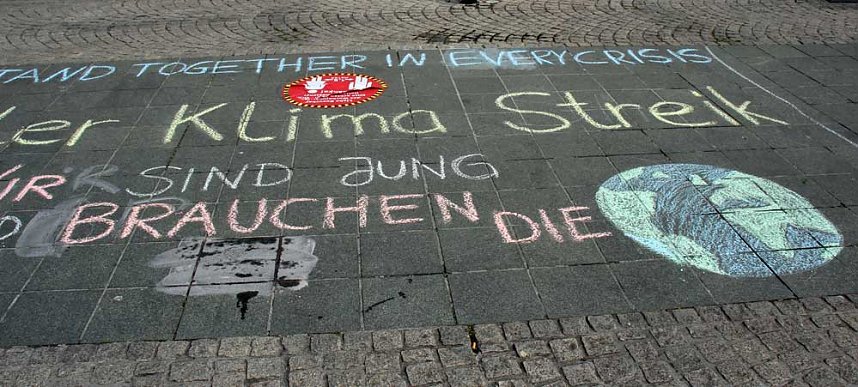 TAND TOGETHER IN EVERY CRISIS
der Klima Streik
SIND JUNG
BRAUCHEN DIE